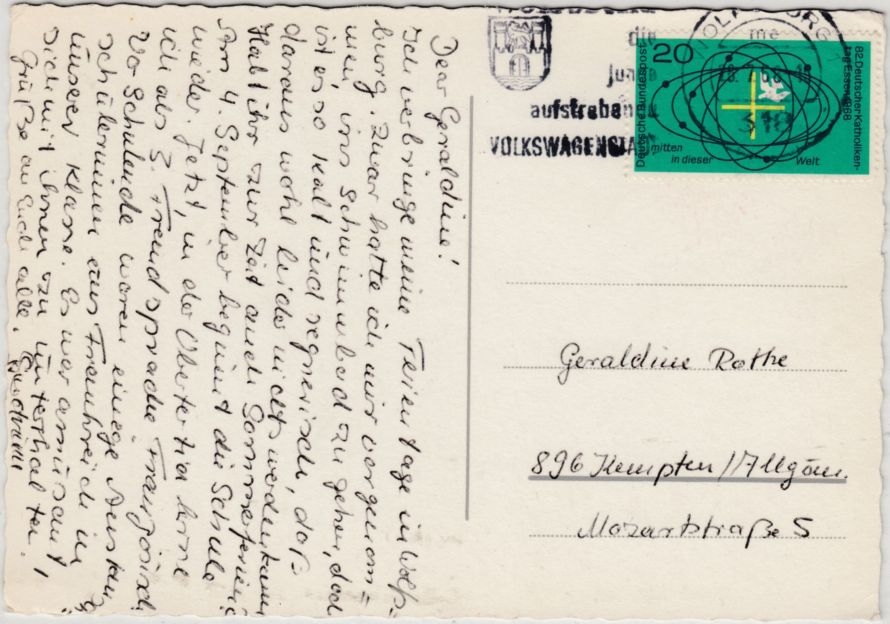 Dear Geraldine!
Ich verbringe meine Ferientage in Wolfs-
burg. Zwar hatte ich mir vorgenom=
men, ins Schwimmbad zu gehen, doch
ist es so kalt und regnerisch, daß
daraus wohl leider nichts werden kann.
Habt ihr zur Zeit auch Sommerferien?
Am 4. September beginnt die Schule
wieder. Jetzt, in der Obertertia lerne
ich als 3. Fremdsprache Französisch.
Vor Schulende waren einige Austausch-
schülerinnen aus Frankreich in
unserer Klasse. Es war amüsant,
sich mit ihnen zu unterhalten!
Grüße an Euch alle.
die
junge
aufstrebende
VOLKSWAGENSTADT
WOLFSBURG
318
20
Deutsche Bundespost
82. Deutscher Katholiken-
tag Essen 1968
mitten
in dieser Welt
Geraldine Rothe
896 Kempten/Allgäu.
Mozartstraße 5